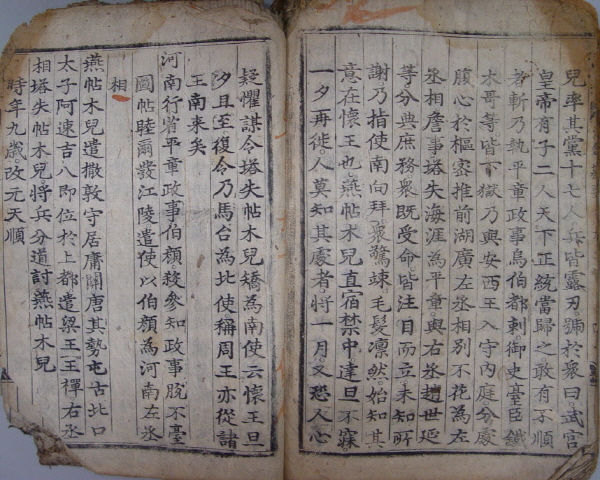 兒率其黨十七人兵皆露刃號於衆曰武宗
皇帝有子二人天下正統當歸之敢有不順
者斬乃執平章政事烏伯都剌御史臺臣鐵
木哥等皆下獄乃與安西王入守内庭分處
腹心於樞密推前湖廣左丞相別不花為左
丞相詹事塔失海涯為平章與右丞趙世延
等分典庶務衆既受命皆注目而立未知所
謝乃指使南向拜衆驚竦毛髮凛然始知其
意在懷王也燕帖木兒直宿禁中達旦不寐
一夕再徙人莫知其處者將一月又恐人心
疑懼謀令塔失帖木兒矯為南使云懷王旦
夕且至復令乃馬台為北使稱周王亦從諸
王南来矣
河南行省平章政事伯顔殺參知政事脫不臺
圖帖睦爾發江陵遣使以伯顔為河南左丞
相
燕帖木兒遣撒敦守居庸關唐其勢屯古北口
太子阿速吉八即位於上都遣梁王王禪右丞
相塔失帖木兒將兵分道討燕帖木兒
時年九歲改元天順